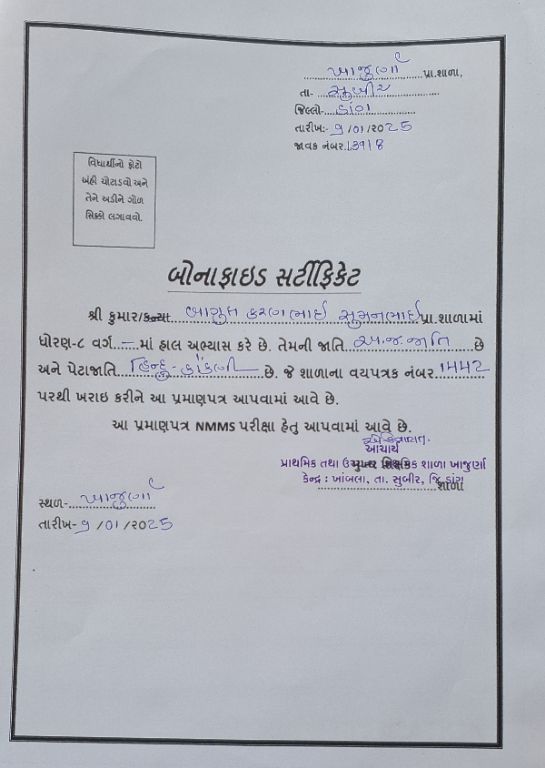 ખાજુર્ણા પ્રા.શાળા,
તા- સુબીર
જિલ્લો- ડાંગ
તારીખ:- ૭/૦૧/૨૦૨૫
જાવક નંબર.
વિદ્યાર્થીનો ફોટો
અહી ચોટાડવો અને
તેને અડીને ગોળ
સિક્કો લગાવવો.
બોનાફાઇડ સર્ટીફિકેટ
શ્રી કુમાર/કન્યા બાગુલ કરણભાઇ સુમનભાઇ પ્રા.શાળામાં
ધોરણ-૮ વર્ગ - માં હાલ અભ્યાસ કરે છે. તેમની જાતિ અ.જ.જાતિ છે
અને પેટાજાતિ હિન્દુ-કોંકણી છે. જે શાળાના વયપત્રક નંબર ૧૫૫૨
પરથી ખરાઇ કરીને આ પ્રમાણપત્ર આપવામાં આવે છે.
આ પ્રમાણપત્ર NMMS પરીક્ષા હેતુ આપવામાં આવે છે.
આચાર્ય
પ્રાથમિક તથા શાળા ખાજુર્ણા
કેન્દ્ર : ખાંબલા, તા. સુબીર, જિ.ડાંગ
શાળા
સ્થળ- ખાજુર્ણા
તારીખ- ૭/૦૧/૨૦૨૫